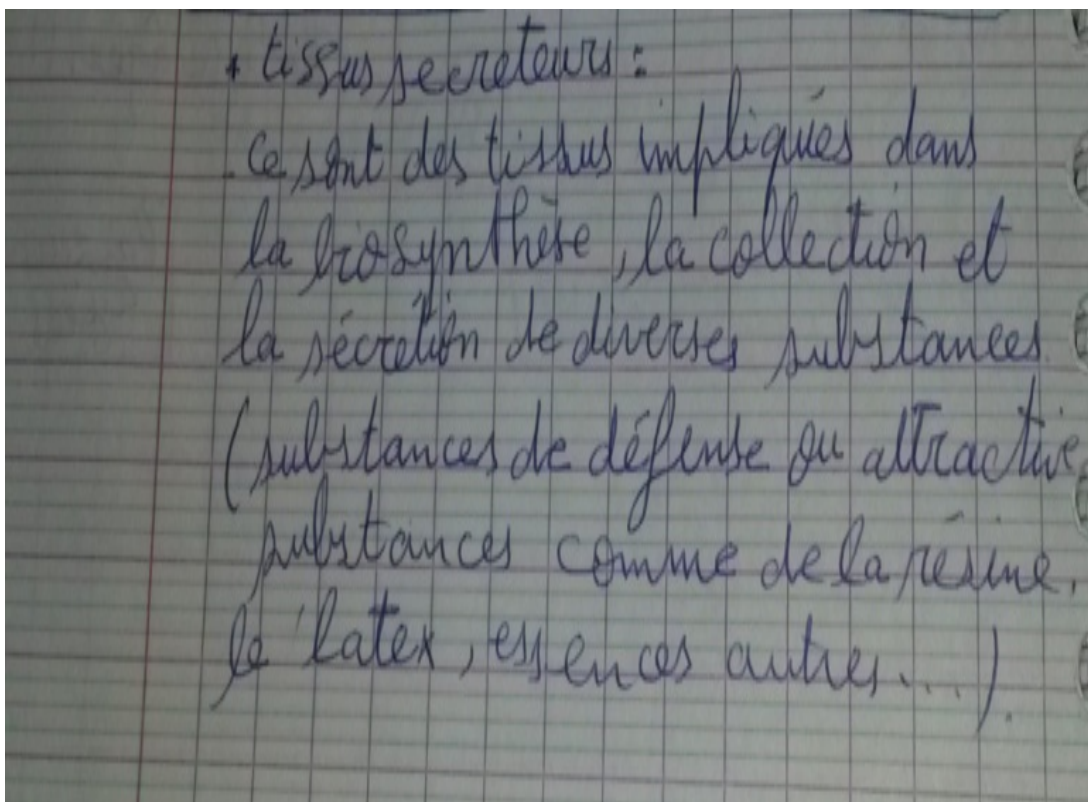 * tissus secreteurs :
- ce sont des tissus impliqués dans
la biosynthèse, la collection et
la sécrétion de diverses substances
(substances de défense ou attractive
substances comme de la résine,
le latex, essences autres...).